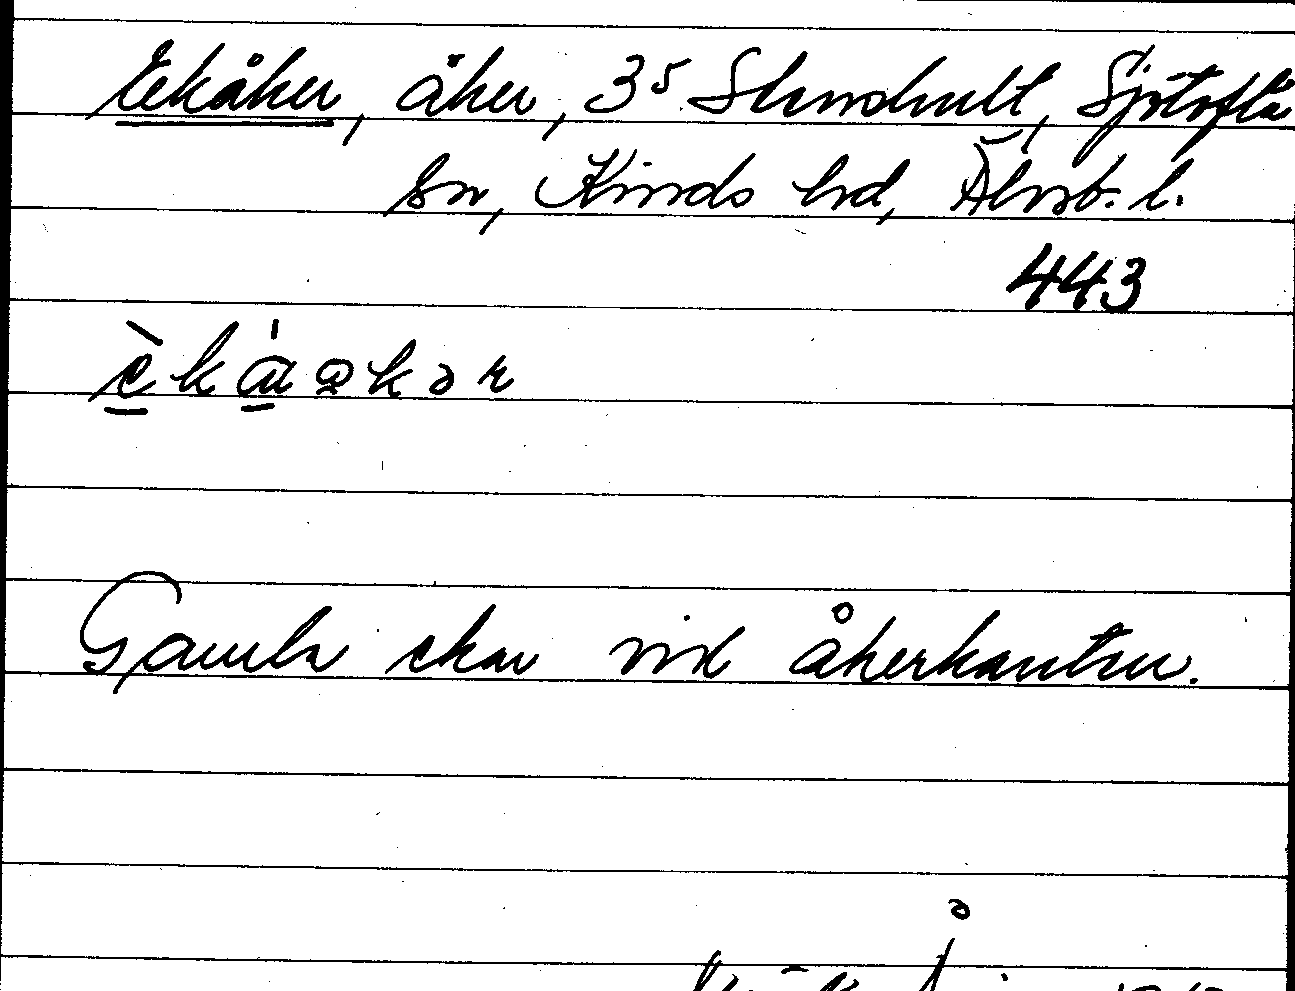 Ekåker, åker, 3⁵ Slundhult, Sjötofta
sn, Kinds hd, Älvsb. l.
443
èkáakər
Gamla ekar vid åkerkanten.